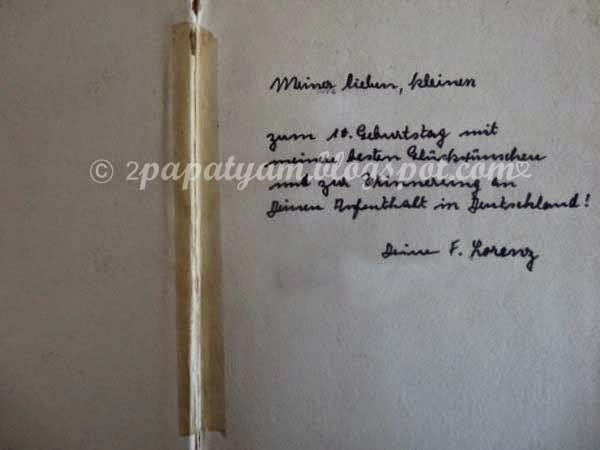 Meiner lieben, kleinen
zum 10. Geburtstag mit
meinen besten Glückwünschen
© 2papatyam.blogspot.com
und zur Erinnerung an
Deinen Aufenthalt in Deutschland!
Deine F. Lorenz